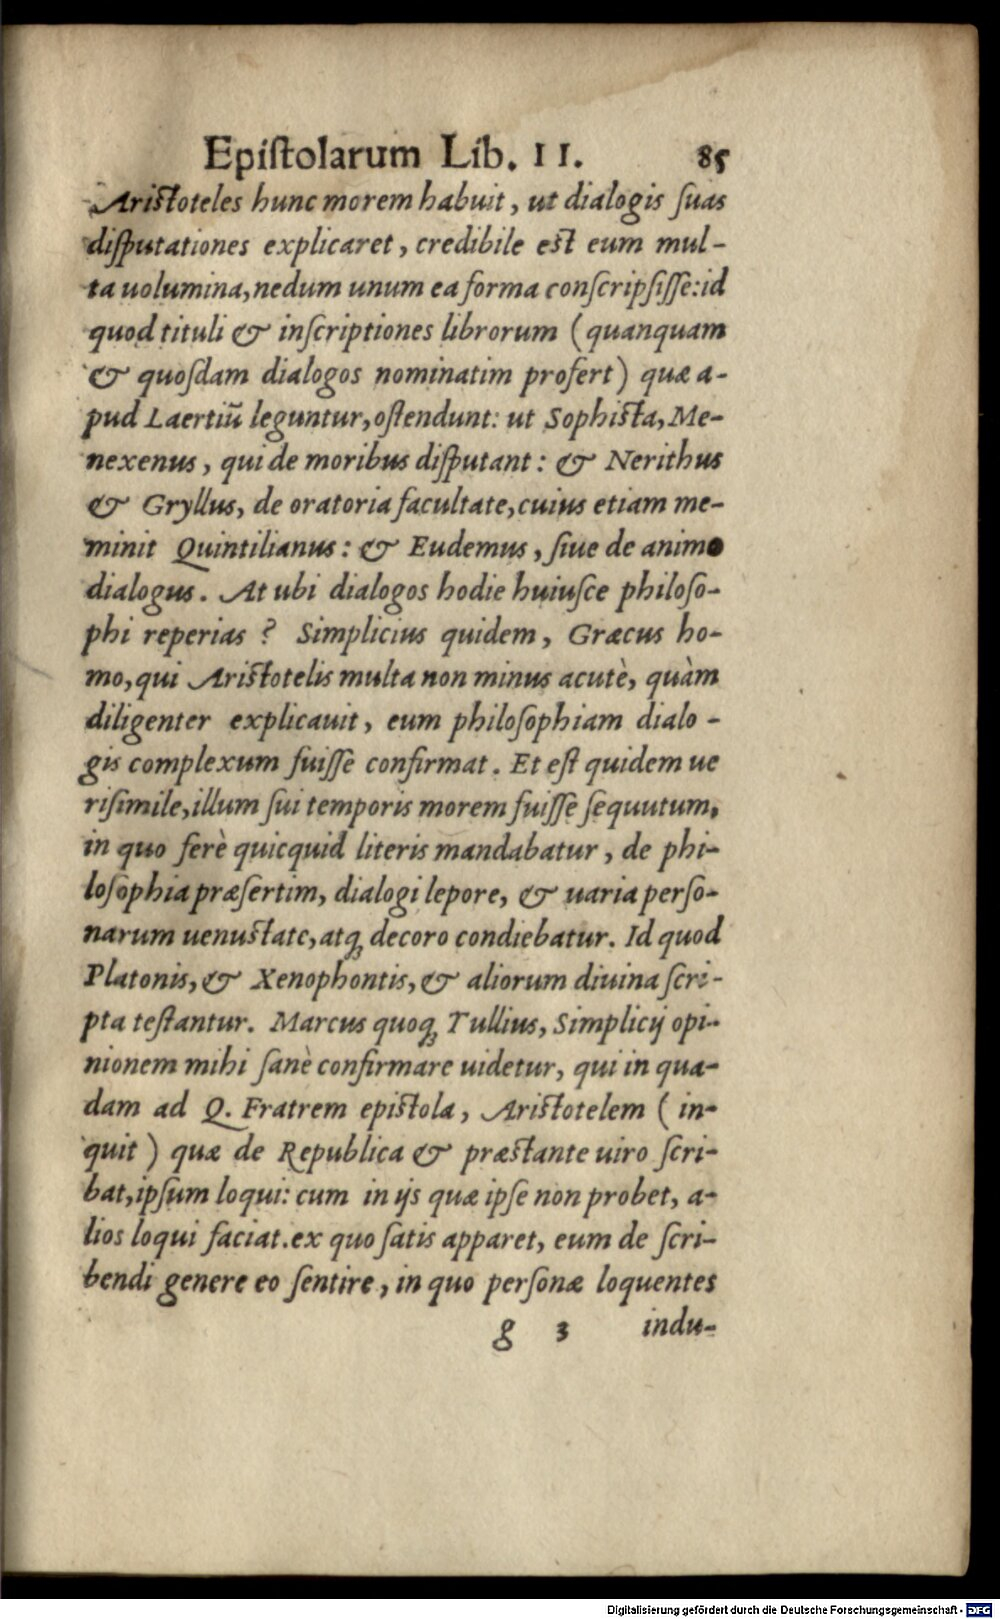 Epiſtolarum Lib. II. 85
Ariſtoteles hunc morem habuit, ut dialogis ſuas
diſputationes explicaret, credibile eſt eum mul-
ta uolumina, nedum unum ea forma conſcripſiſſe: id
quod tituli & inſcriptiones librorum (quanquam
& quoſdam dialogos nominatim profert) quæ a-
pud Laertiū leguntur, oſtendunt: ut Sophiſta, Me-
nexenus, qui de moribus diſputant: & Nerithus
& Gryllus, de oratoria facultate, cuius etiam me-
minit Quintilianus: & Eudemus, ſiue de animo
dialogus. At ubi dialogos hodie huiuſce philoſo-
phi reperias? Simplicius quidem, Græcus ho-
mo, qui Ariſtotelis multa non minus acutè, quàm
diligenter explicauit, eum philoſophiam dialo-
gis complexum fuiſſe confirmat. Et eſt quidem ue
riſimile, illum ſui temporis morem fuiſſe ſequutum,
in quo ferè quicquid literis mandabatur, de phi-
loſophia præſertim, dialogi lepore, & uaria perſo-
narum uenuſtate, atq; decoro condiebatur. Id quod
Platonis, & Xenophontis, & aliorum diuina ſcri-
pta teſtantur. Marcus quoq; Tullius, Simplicij opi-
nionem mihi ſanè confirmare uidetur, qui in qua-
dam ad Q. Fratrem epiſtola, Ariſtotelem (in-
quit) quæ de Republica & præſtante uiro ſcri-
bat, ipſum loqui: cum in ijs quæ ipſe non probet, a-
lios loqui faciat. ex quo ſatis apparet, eum de ſcri-
bendi genere eo ſentire, in quo perſonæ loquentes
g 3 indu-
Digitalisierung gefördert durch die Deutsche Forschungsgemeinschaft - DFG